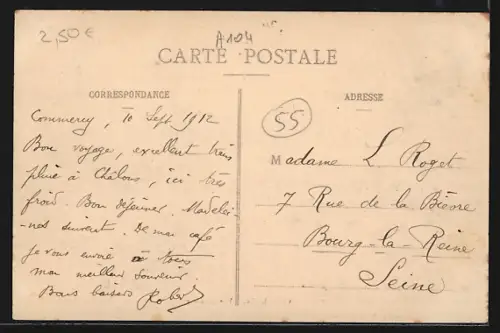 2,50€
A104
CARTE POSTALE
CORRESPONDANCE
Commercy, 10 Sept 1912
Bon voyage, excellent train
pluie à Châlons, ici très
froid. Bon déjeuner. Madelei
-nes suivent. De mon café
je vous envoie à tous
mon meilleur souvenir.
Bons baisers Robert
ADRESSE
55
Madame L Roget
7 Rue de la Bièvre
Bourg-la-Reine
Seine